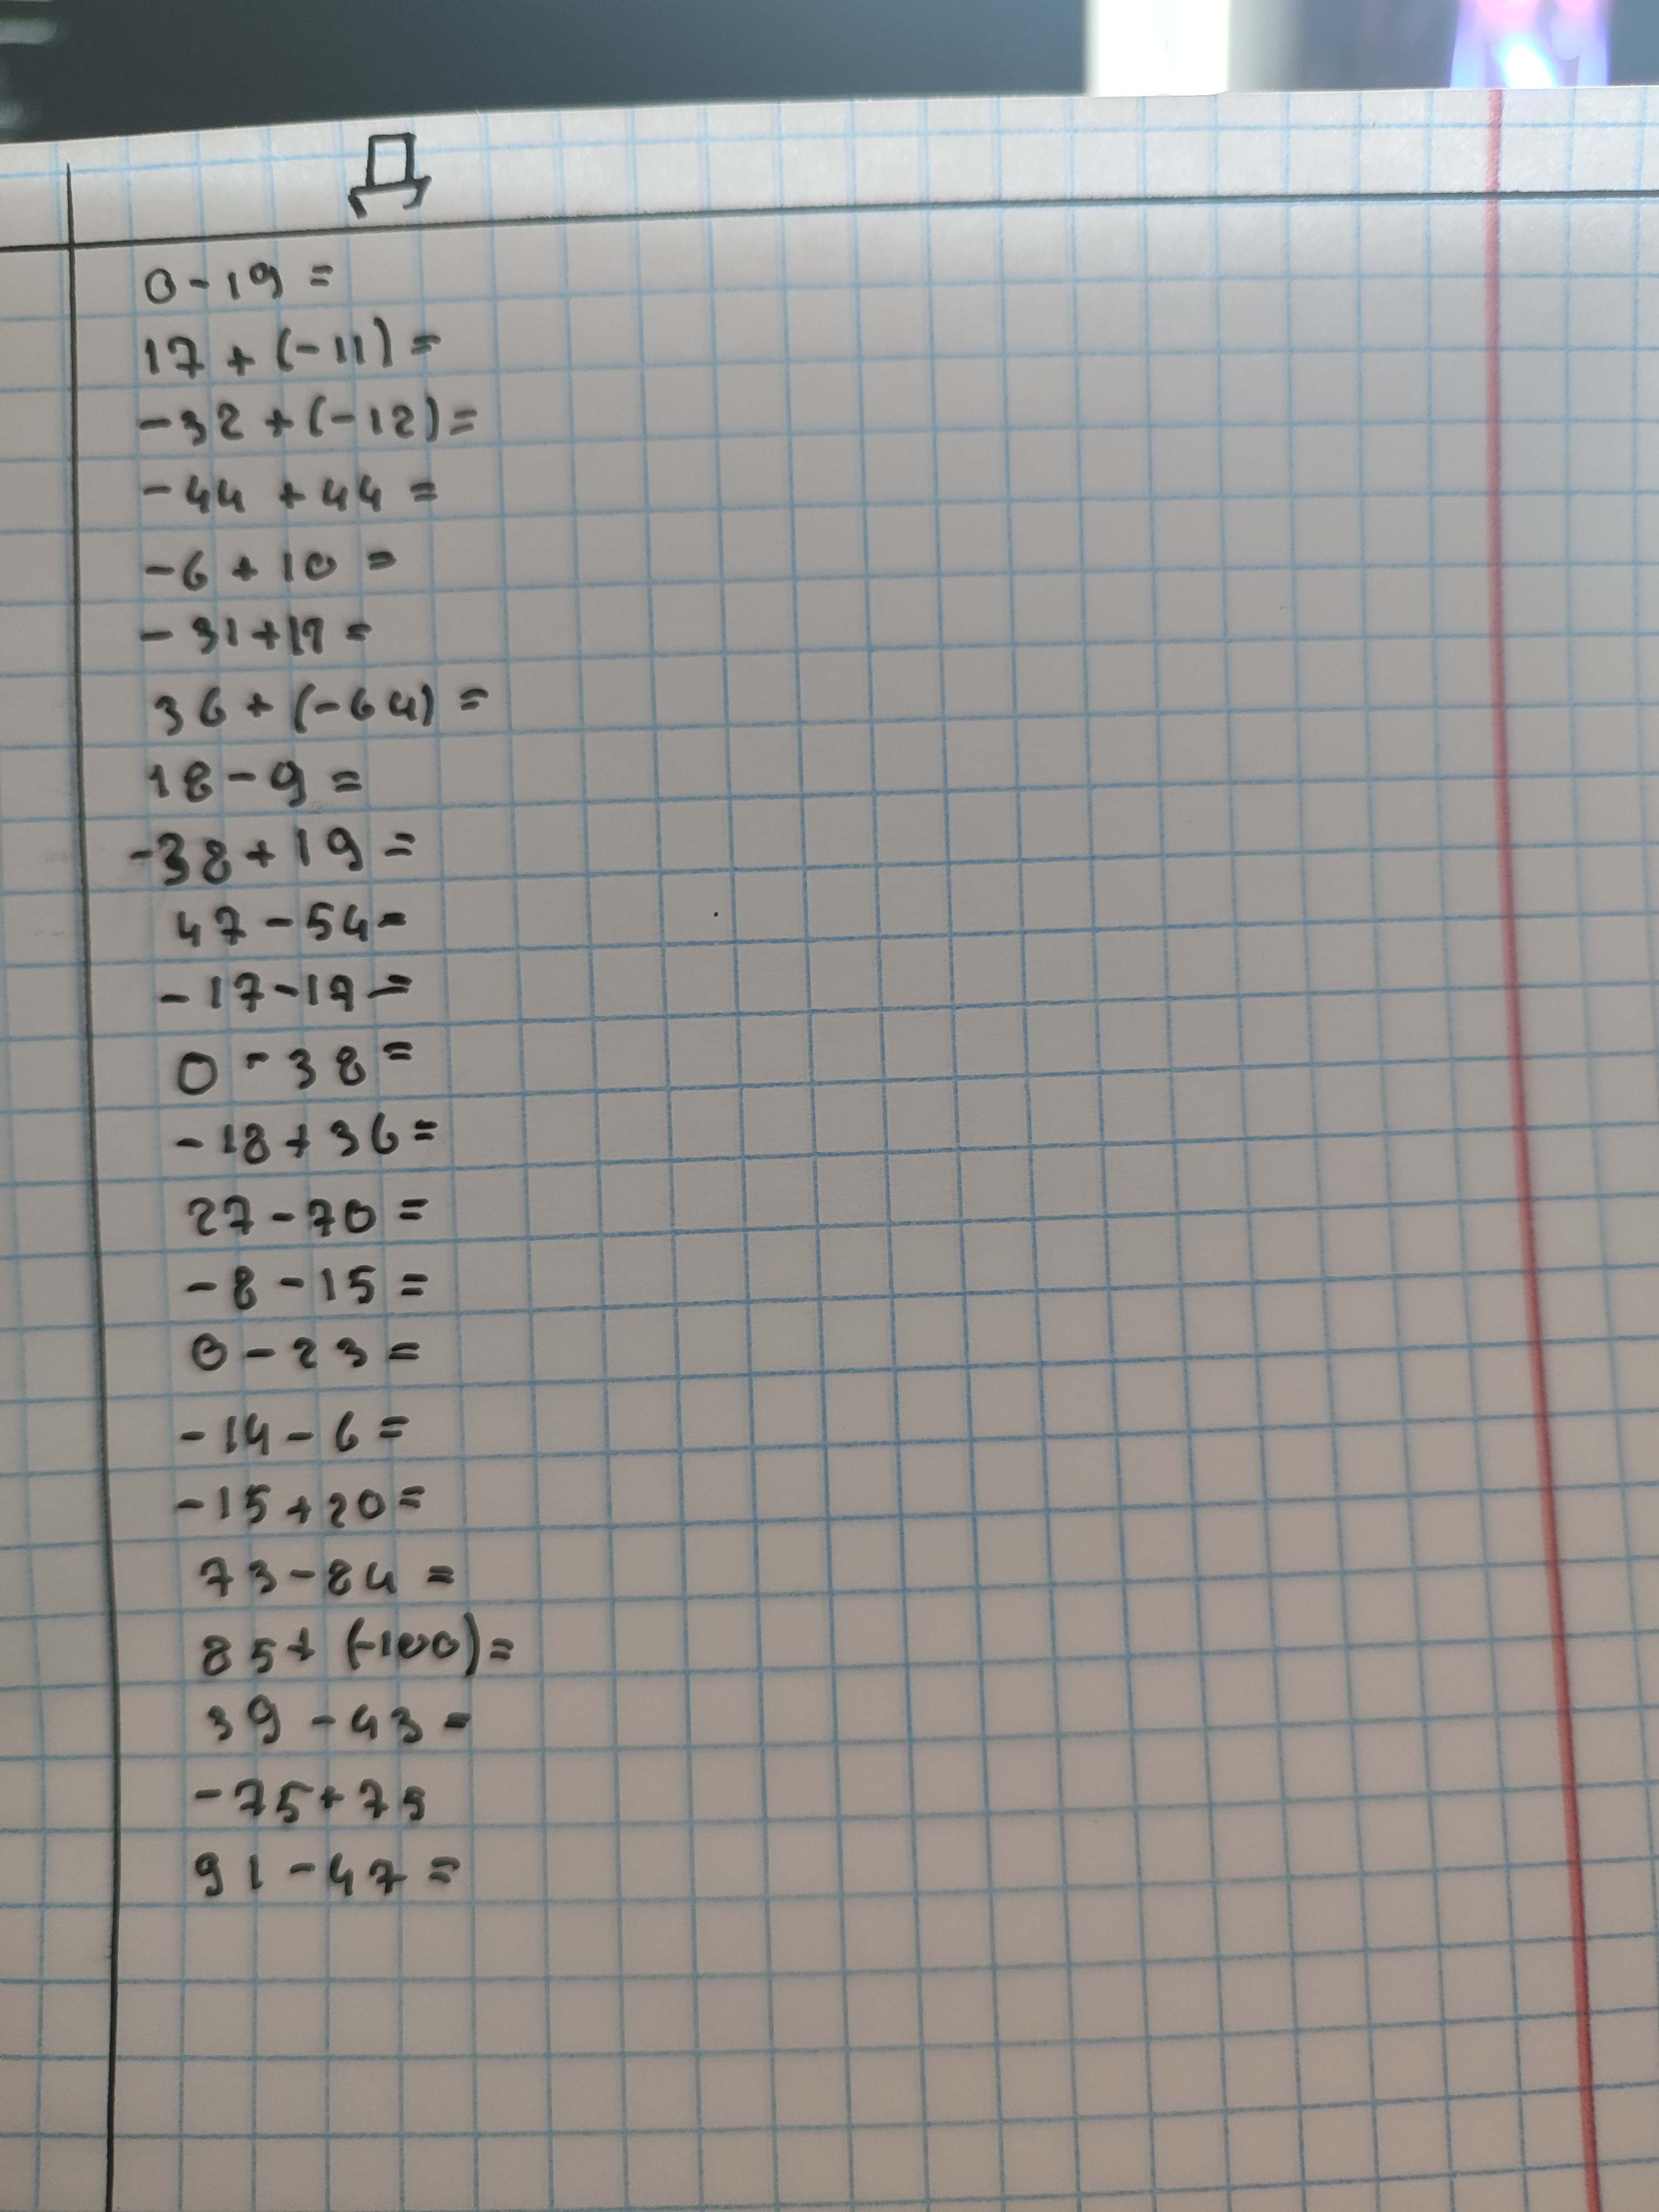 Д
0-19=
17+(-11)=
-32+(-12)=
-44+44=
-6+10=
-31+17=
36+(-64)=
18-9=
-38+19=
47-54=
-17-19=
0-38=
-18+36=
27-70=
-8-15=
0-23=
-14-6=
-15+20=
73-84=
85+(-100)=
39-43=
-75+75
91-47=